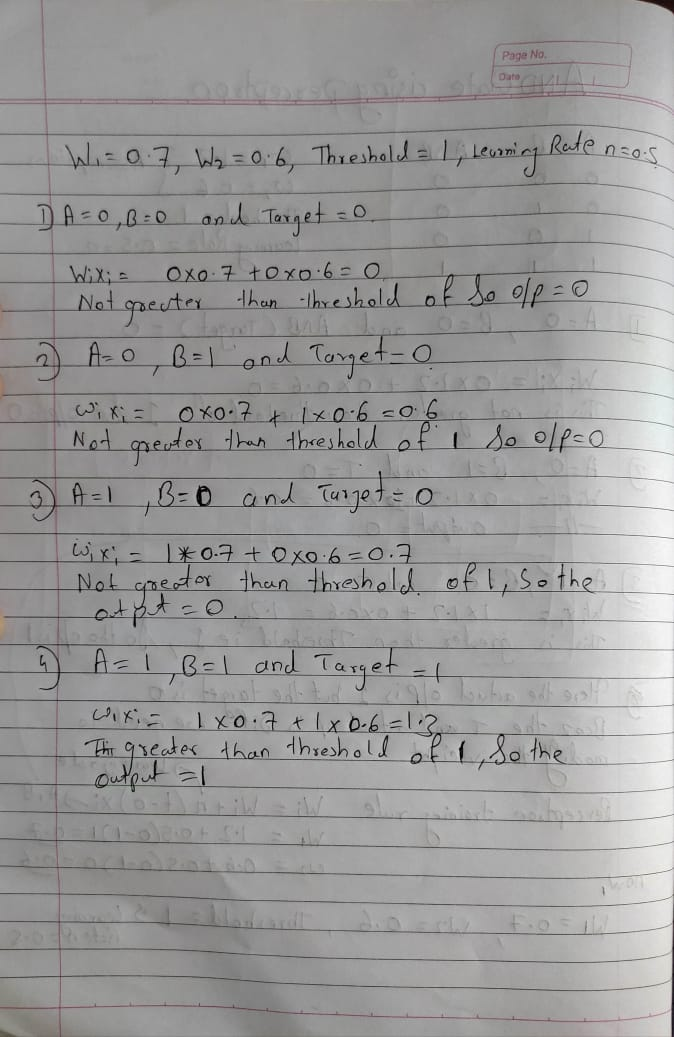 Page No.
Date
W1 = 0.7, W2 = 0.6, Threshold = 1, Learning Rate n=0.5
1) A=0, B=0 and Target = 0
WiXi = 0x0.7 + 0x0.6 = 0
Not greeter than threshold of So o/p = 0
2) A=0, B=1 and Target = 0
wixi = 0x0.7 + 1x0.6 = 0.6
Not greater than threshold of 1 So o/p=0
3) A=1, B=0 and Target = 0
wixi = 1*0.7 + 0x0.6 = 0.7
Not greater than threshold of 1, So the
otpt = 0.
4) A=1, B=1 and Target = 1
wixi = 1x0.7 + 1x0.6 = 1.3
greater than threshold of 1, So the
output = 1